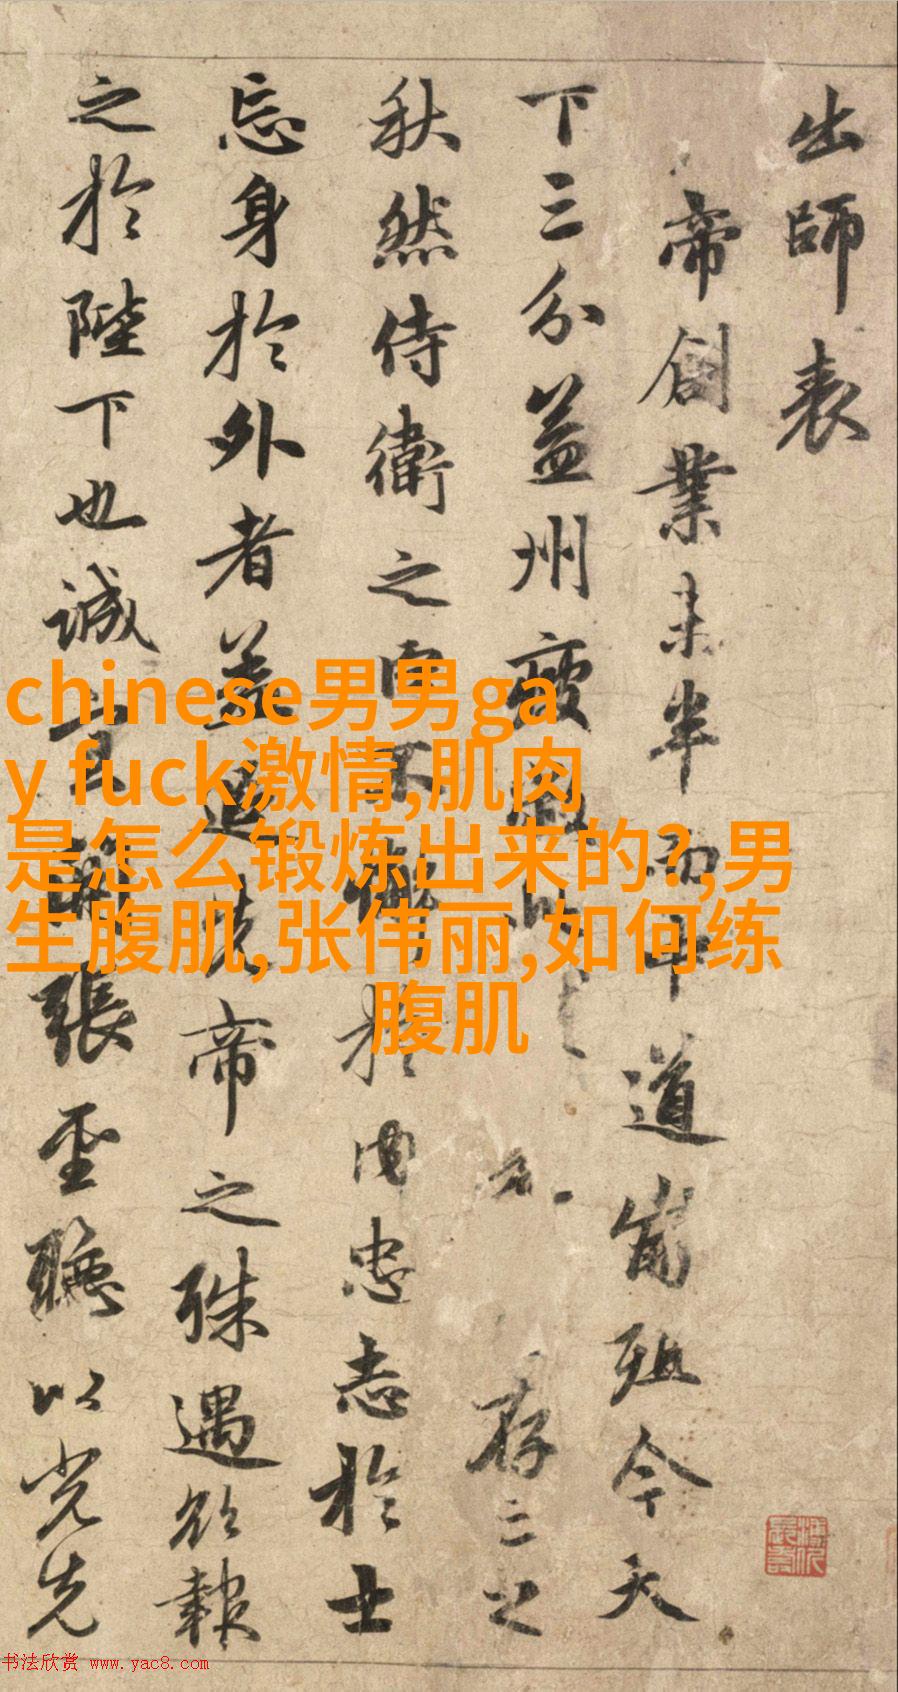 出師表
帝創業未半而中道崩殂今天
下三分益州疲存之
秋然侍衛之臣不懈於内忠志於士
忘身於外者蓋追先帝之殊遇欲報
之於陛下也誠宜開張聖聽以光先
chinese男男ga
y fuck激情,肌肉
是怎么锻炼出来的?,男
生腹肌,张伟丽,如何练
腹肌
书法欣赏 www.yac8.com